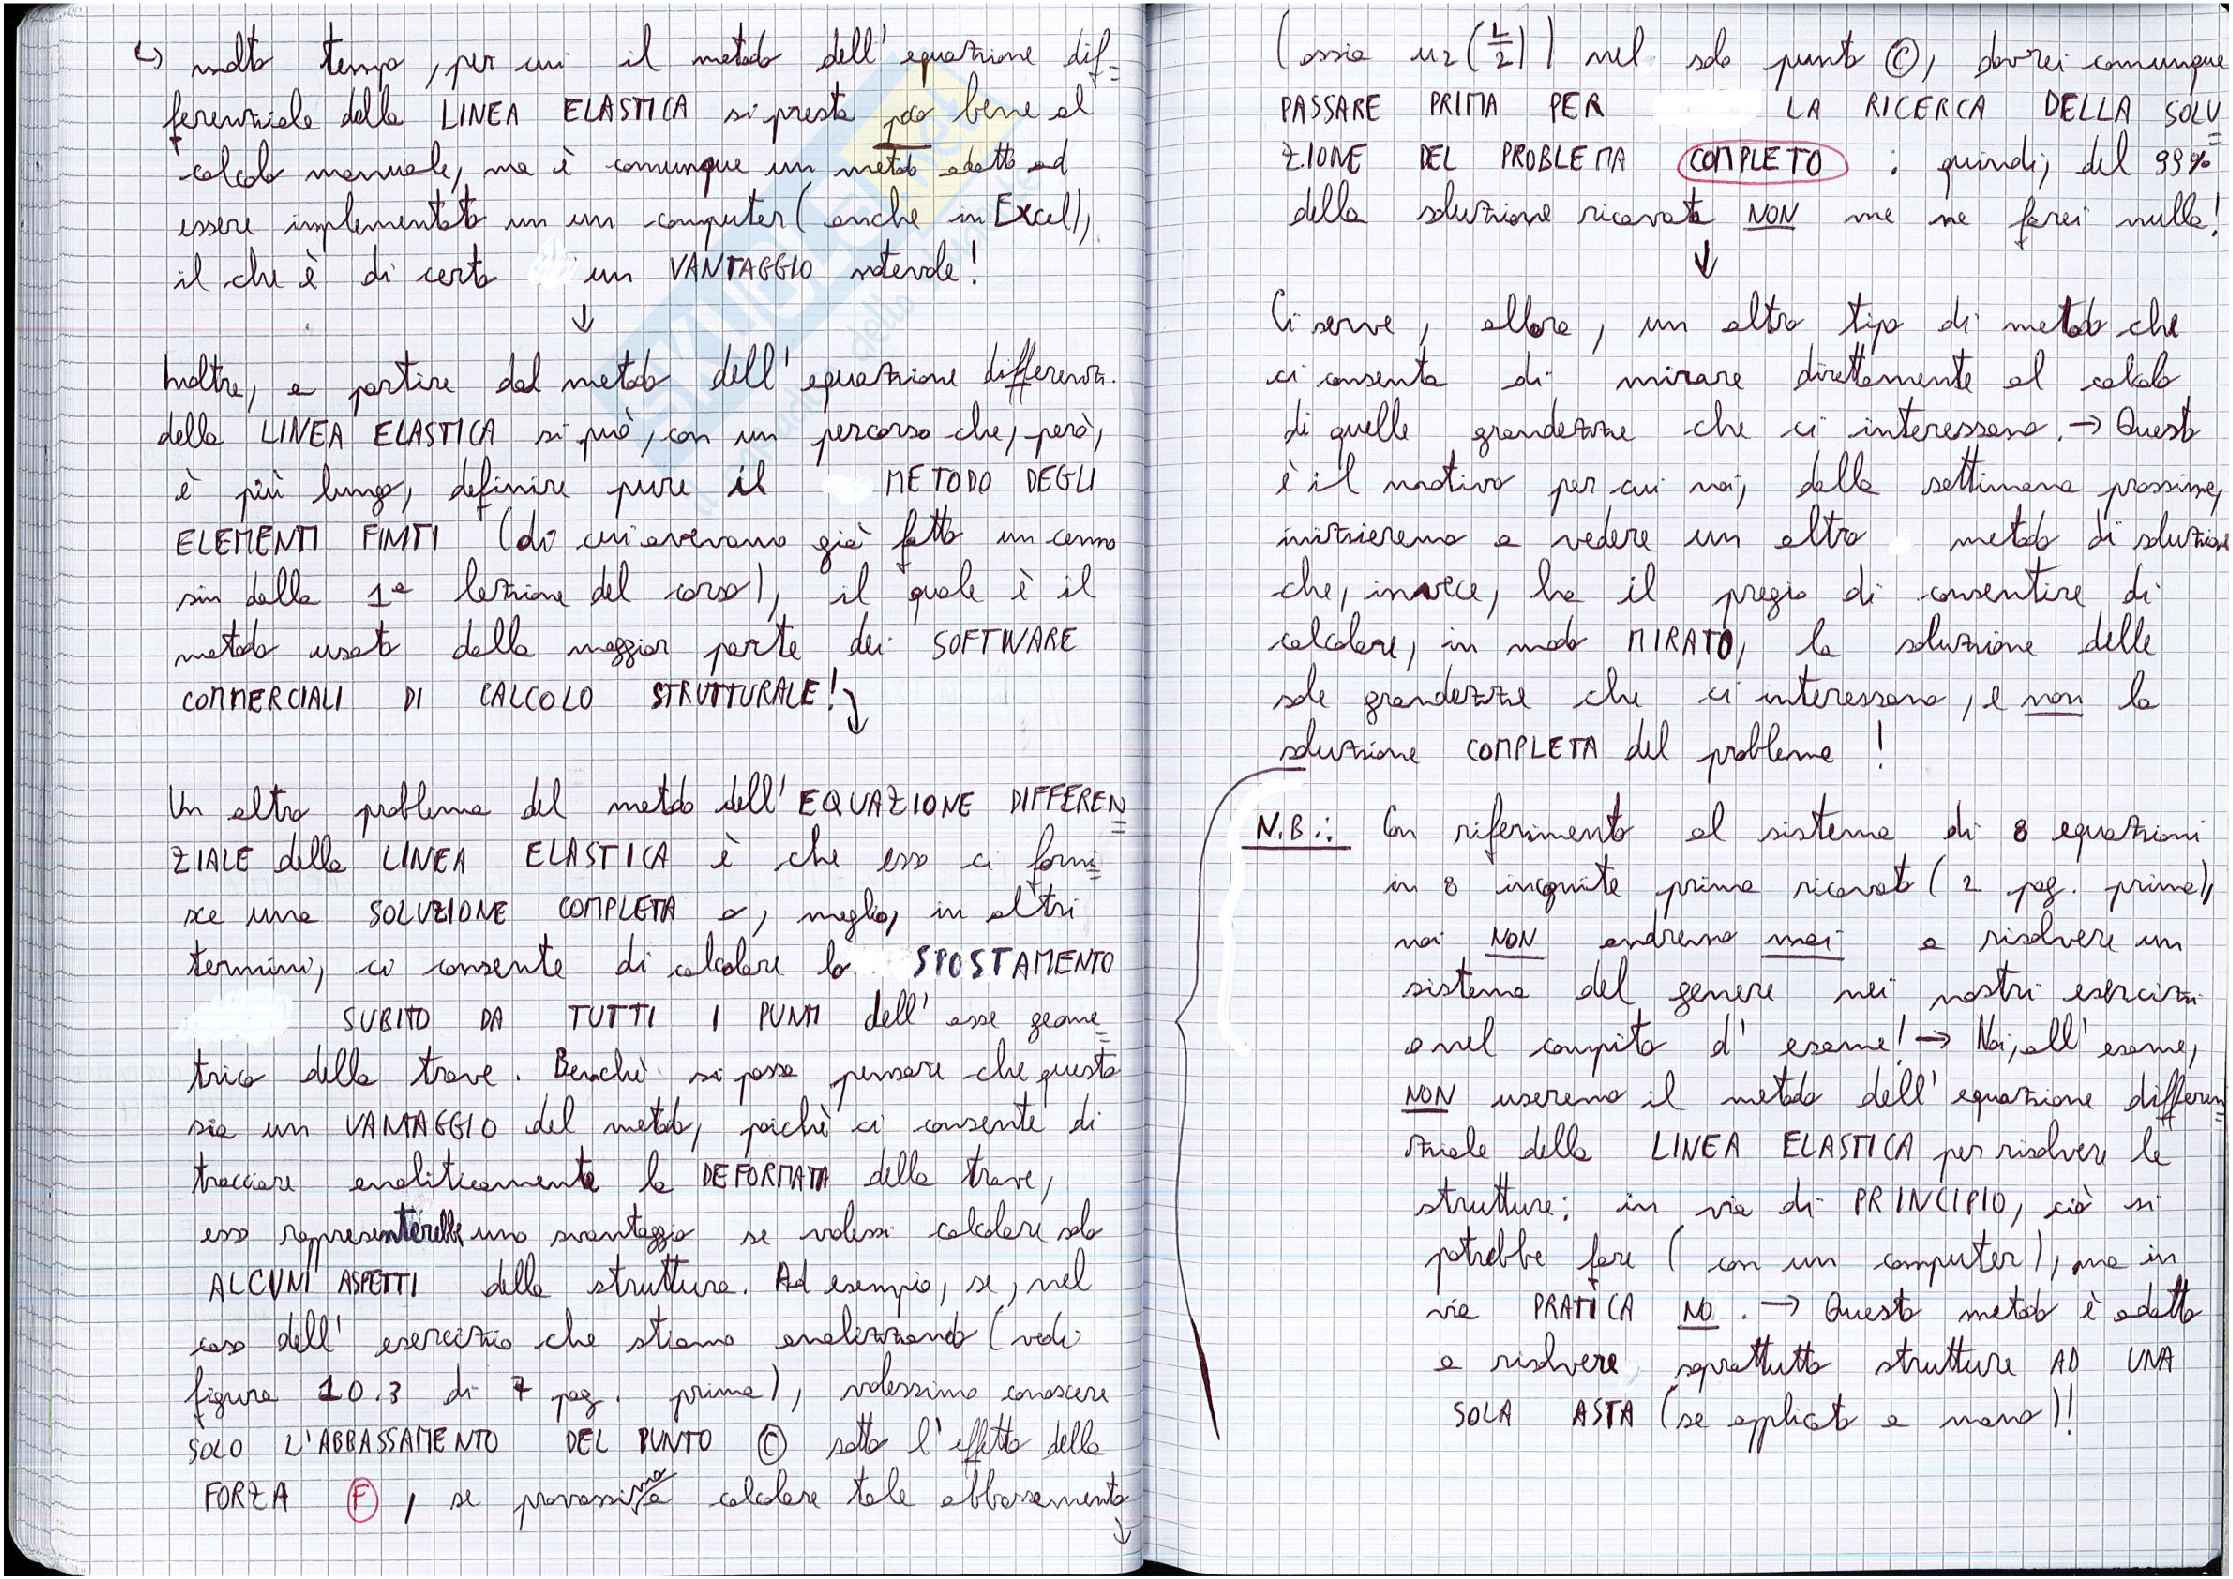 ↳ molto tempo, per cui il metodo dell'equazione dif=
ferenziale della LINEA ELASTICA si presta poco bene al
calcolo manuale, ma è comunque un metodo adatto ad
essere implementato in un computer (anche in Excel),
il che è di certo un VANTAGGIO notevole!
↓
Inoltre, a partire dal metodo dell'equazione differenz.
della LINEA ELASTICA si può, con un percorso che, però,
è più lungo, definire pure il METODO DEGLI
ELEMENTI FINITI (di cui avevamo già fatto un cenno
sin dalla 1ª lezione del corso), il quale è il
metodo usato dalla maggior parte dei SOFTWARE
COMMERCIALI DI CALCOLO STRUTTURALE! ↓
Un altro problema del metodo dell'EQUAZIONE DIFFEREN=
ZIALE della LINEA ELASTICA è che esso ci forni=
sce una SOLUZIONE COMPLETA o, meglio, in altri
termini, ci consente di calcolare lo SPOSTAMENTO
SUBITO DA TUTTI I PUNTI dell'asse geome=
trico della trave. Benchè si possa pensare che questo
sia un VANTAGGIO del metodo, poichè ci consente di
tracciare analiticamente la DEFORMATA della trave,
esso rappresenterebbe uno svantaggio se volessi calcolare solo
ALCUNI ASPETTI della struttura. Ad esempio, se, nel
caso dell'esercizio che stiamo analizzando (vedi
figura 10.3 di 7 pag. prima), volessimo conoscere
SOLO L'ABBASSAMENTO DEL PUNTO Ⓒ sotto l'effetto della
FORZA Ⓕ, se provassimo calcolare tale abbassamento
↓
(ossia u₂(L/2)) nel solo punto Ⓒ, dovrei comunque
PASSARE PRIMA PER LA RICERCA DELLA SOLU=
ZIONE DEL PROBLEMA COMPLETO : quindi, del 99%
della soluzione ricavata NON me ne farei nulla!
↓
Ci serve, allora, un altro tipo di metodo che
ci consenta di mirare direttamente al calcolo
di quelle grandezze che ci interessano. → Questo
è il motivo per cui noi, dalla settimana prossima,
inizieremo a vedere un altro metodo di soluzione
che, invece, ha il pregio di consentire di
calcolare, in modo MIRATO, la soluzione delle
sole grandezze che ci interessano, e non la
soluzione COMPLETA del problema!
N.B.: Con riferimento al sistema di 8 equazioni
in 8 incognite prima ricavato (2 pag. prima),
noi NON andremo mai a risolvere un
sistema del genere nei nostri esercizi
o nel compito d'esame! → Noi, all'esame,
NON useremo il metodo dell'equazione differen=
ziale della LINEA ELASTICA per risolvere le
strutture; in via di PRINCIPIO, ciò si
potrebbe fare (con un computer), ma in
via PRATICA NO. → Questo metodo è adatto
a risolvere soprattutto strutture AD UNA
SOLA ASTA (se applicato a mano)!